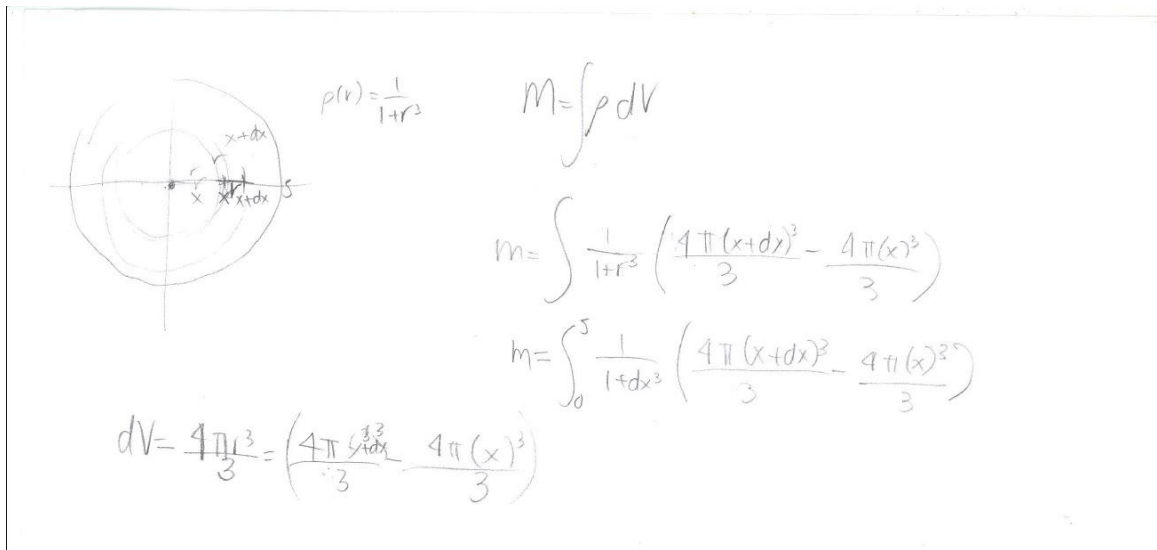 ρ(r) = 1/(1+r³)
M = ∫ρ dV
x+dx
x x x+dx 5
m = ∫ 1/(1+r³) (4π(x+dx)³/3 − 4π(x)³/3)
m = ∫₀⁵ 1/(1+dx³) (4π(x+dx)³/3 − 4π(x)³/3)
dV = 4πr³/3 = (4π /3 − 4π(x)³/3)